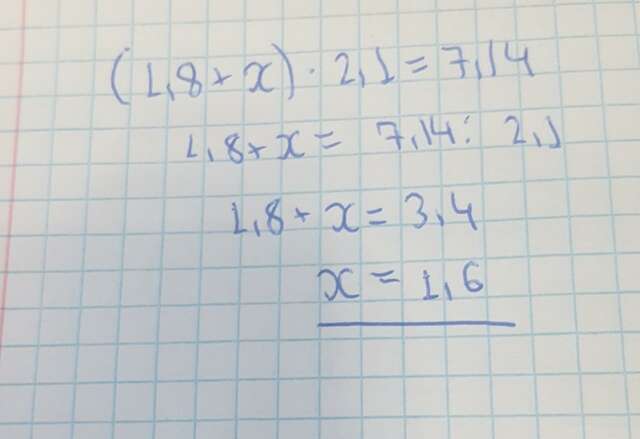 (1,8 + x) · 2,1 = 7,14
1,8 + x = 7,14 : 2,1
1,8 + x = 3,4
x = 1,6